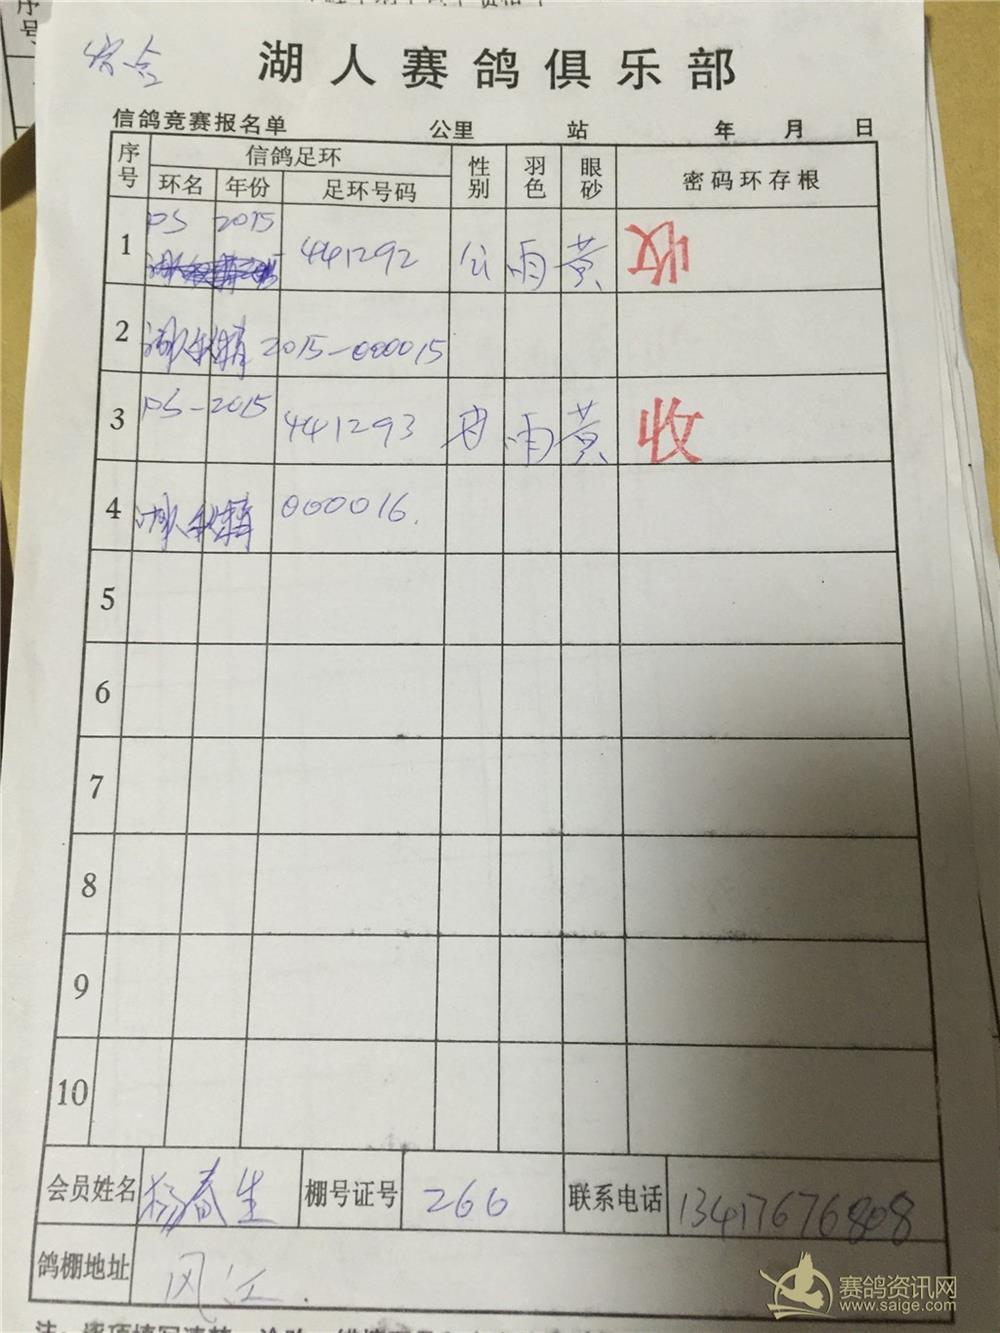 序号
湖人赛鸽俱乐部
信鸽竞赛报名单 公里 站 年 月 日
序号 信鸽足环 性别 羽色 眼砂 密码环存根
环名 年份 足环号码
1 PS 2015 441292 公 雨 黄 收
2 2015-000015
3 PS-2015 441293 雨 黄 收
4 000016.
5
6
7
8
9
10
会员姓名 杨春生 棚号证号 266 联系电话 13417676808
鸽棚地址 风江.
赛鸽资讯网
www.saige.com